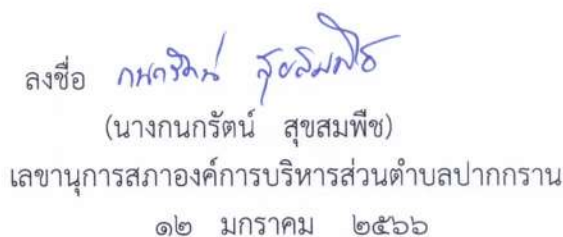 ลงชื่อ กนกรัตน์ สุขสมพืช
(นางกนกรัตน์ สุขสมพืช)
เลขานุการสภาองค์การบริหารส่วนตำบลปากกราน
๑๒ มกราคม ๒๕๖๖